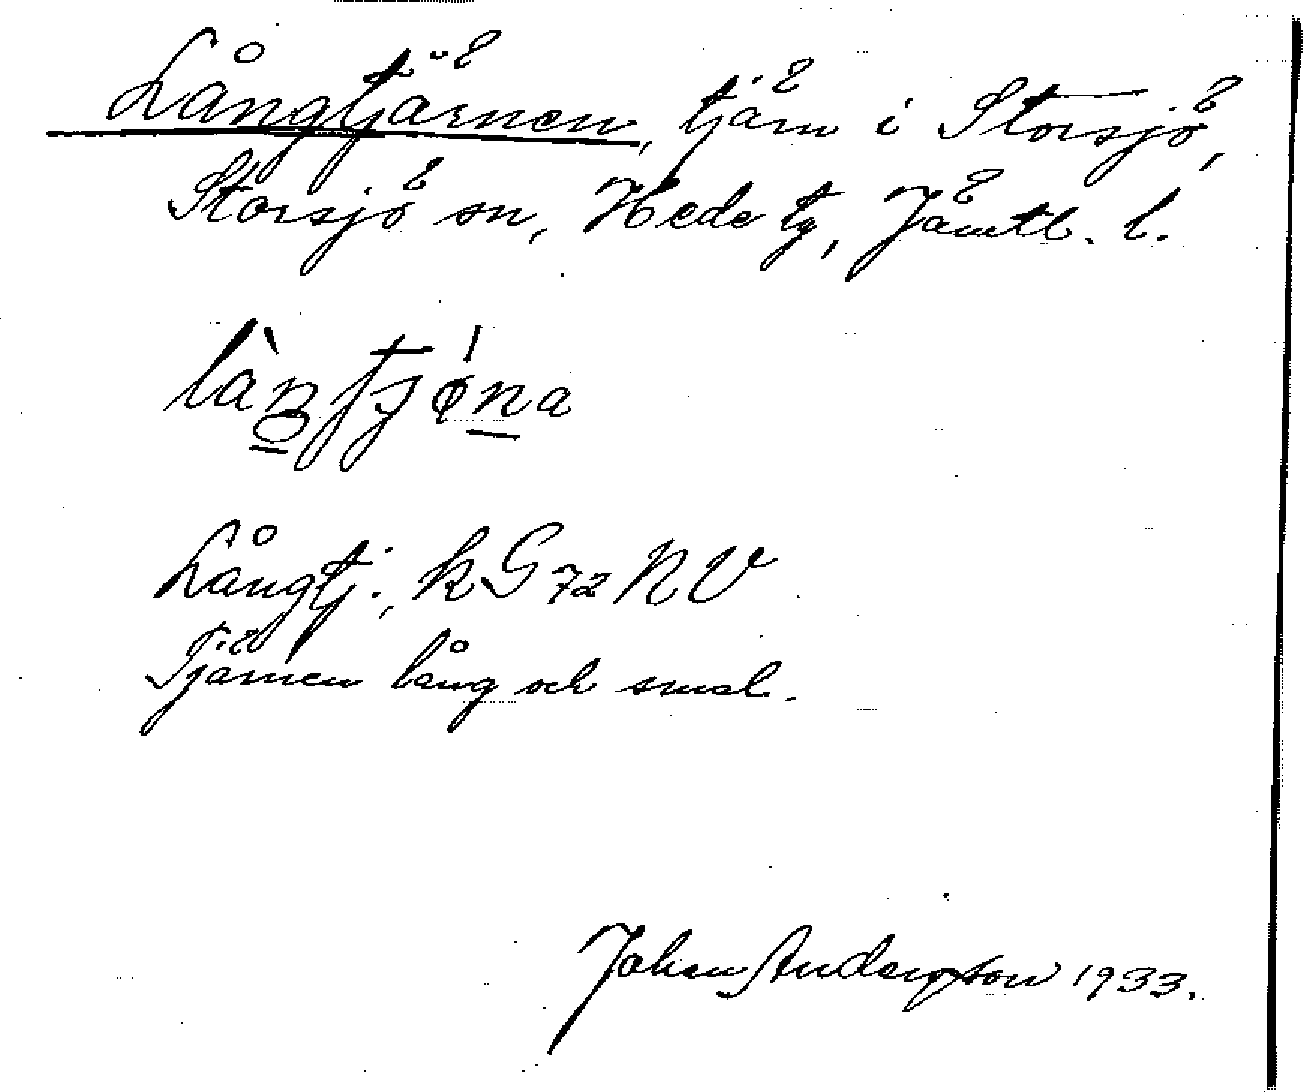 Långtjärnen, tjärn i Storsjö,
Storsjö sn, Hede tg, Jämtl. l.
Långtj., kG72NV
Tjärnen lång och smal.
Johan Andersson 1933.